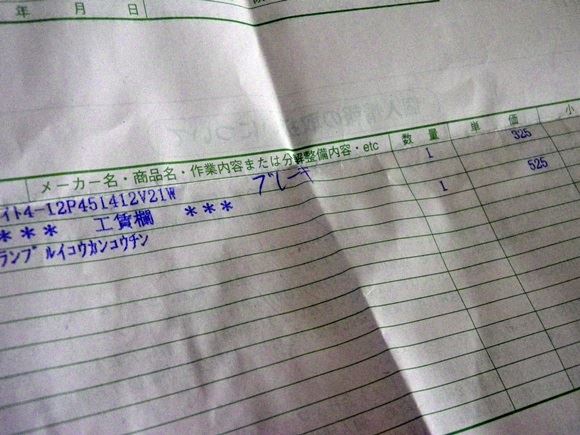 年 月 日
個人情報の取扱について
小
メーカー名・商品名・作業内容または分解整備内容・etc 数量 単価
イト4-12P451412V21W ブレーキ 1 325
*** 工賃欄 *** 1 525
ランプルイコウカンコウチン